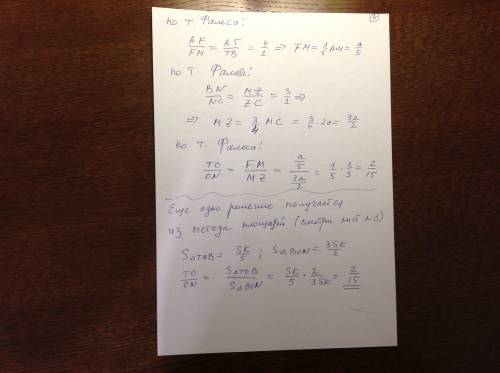 ④
по т. Фалеса!
AF/FM = AT/TB = 4/1 ⇒ FM = 1/5 AM = a/5
по т. Фалеса!
BN/NC = MZ/ZC = 3/1 ⇒
⇒ MZ = 3/4 MC = 3/4 · 2a = 3a/2
по т. Фалеса!
TO/ON = FM/MZ = (a/5)/(3a/2) = 1/5 · 2/3 = 2/15
Еще одно решение получается
из метода площадей (смотри лист №1)
S△TOB = SK/5 ; S△BON = 3SK/2
TO/ON = S△TOB/S△BON = SK/5 · 2/3SK = 2/15